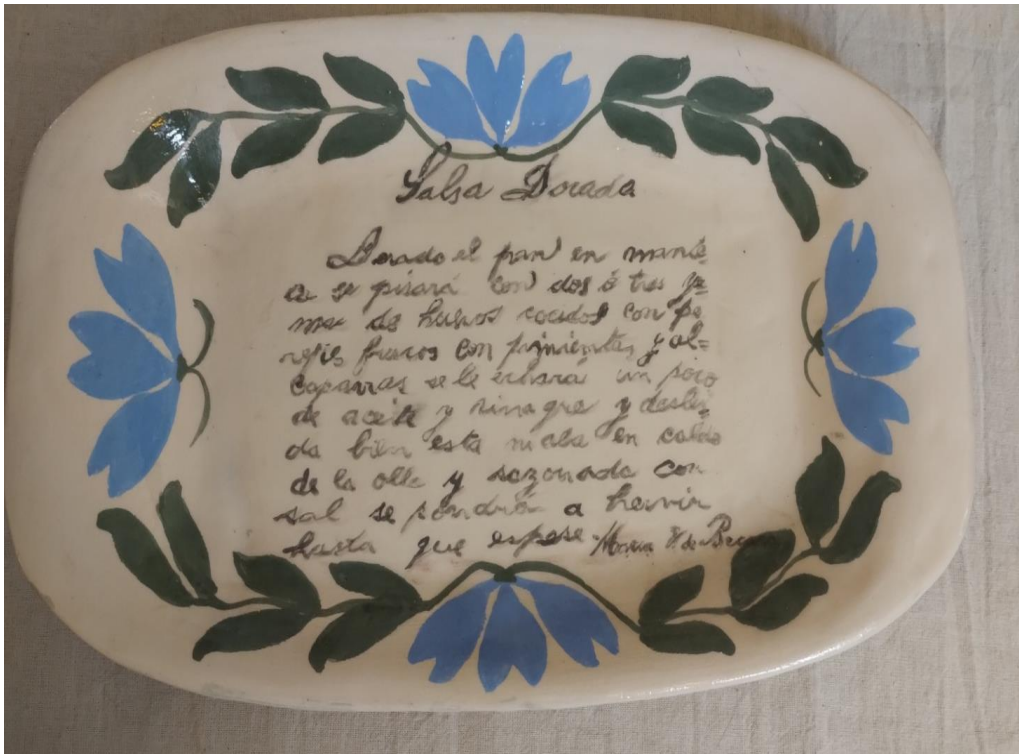 Salsa Dorada
Dorado el pan en mante-
ca se pisará con dos ó tres ye=
mas de huevos cocidos con pe
regil frescos con pimienta, y al=
caparras se le echará un poco
de aceite y vinagre y deslei-
da bien esta mezcla en caldo
de la olla y sazonada con
sal se pondrá a hervir
hasta que espese. Maria V. de